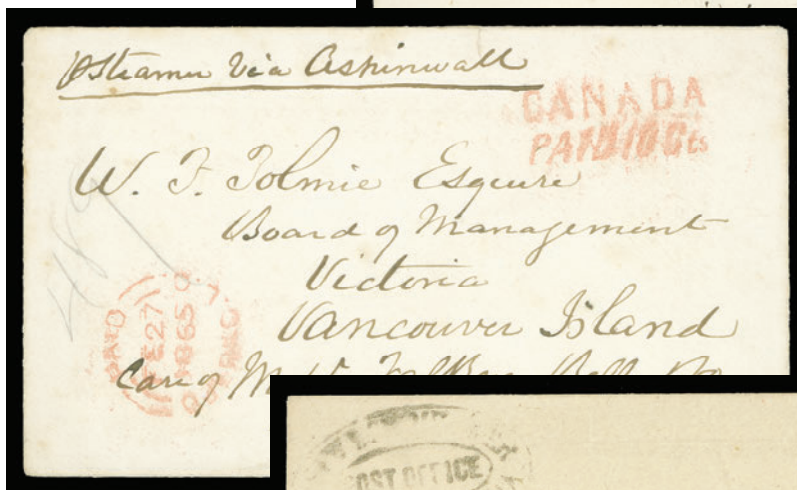 Steamer Via Aspinwall
CANADA
PAID 10 Cts
W. F. Tolmie Esquire
Board of Management
Victoria
Vancouver Island
Care of
PAID
27
1865
489
POST OFFICE